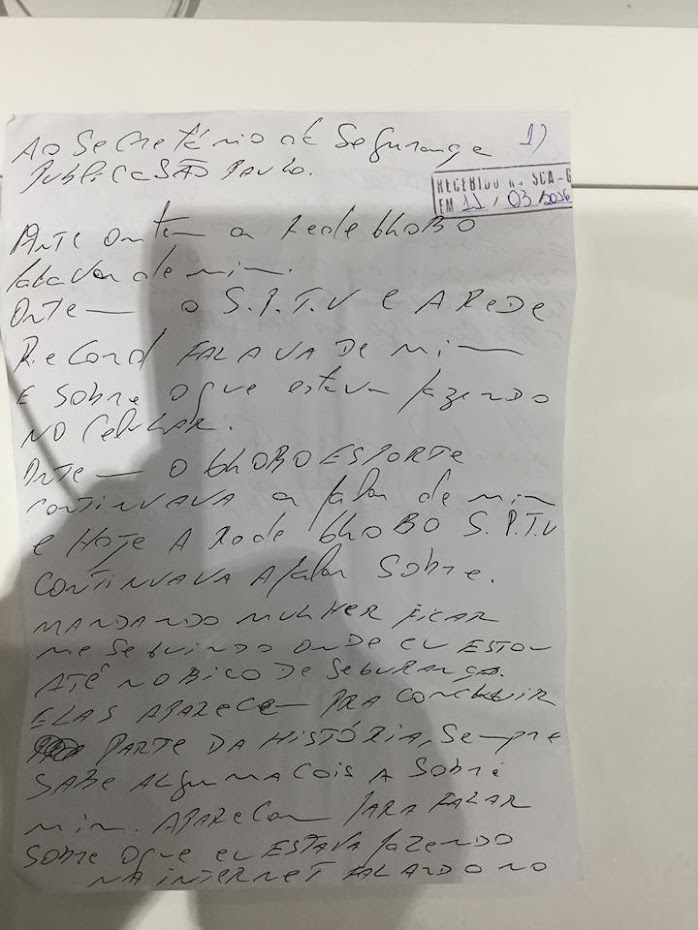 Ao Secretário de Segurança 1)
Publica São Paulo.
RECEBIDO SCA-G
EM 11 / 03
Ante ontem a Rede Globo
falava de mim.
Ontem o S.P.T.V e A REDE
Record FALAVA DE mim
E Sobre o que estava fazendo
NO Celular.
Ontem O GLOBO ESPORTE
CONTINUAVA a falar de mim
e HOJE A Rede GLOBO S.P.T.V
CONTINUAVA A falar Sobre.
MANDANDO MULHER FICAR
me SEGUINDO ONDE EU ESTOU
ATÉ NO BICO DE SEGURANÇA.
ELAS APARECEM PRA CONCLUIR
PARTE DA HISTÓRIA, Sempre
SABE ALGUMA COISA SOBRE
mim. APARECEM PARA FALAR
SOBRE O que eu ESTAVA fazendo
NA INTERNET FALANDO NO